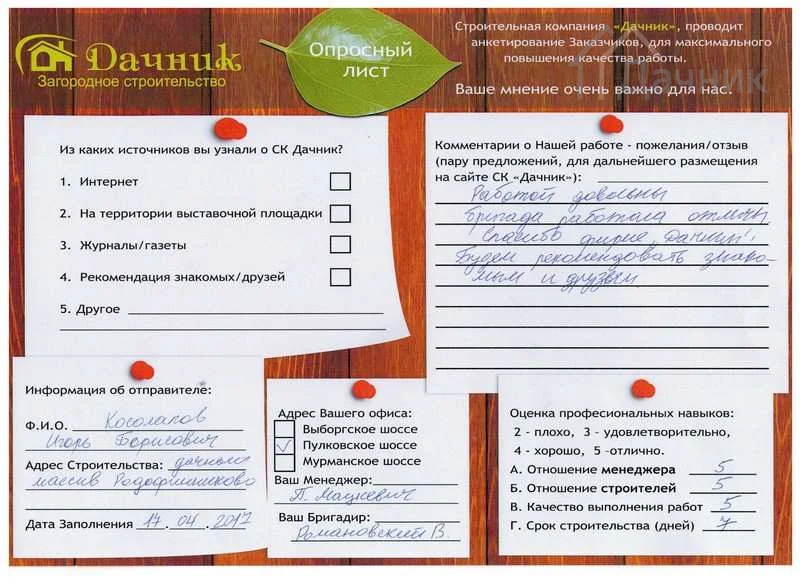 Дачник
Загородное строительство
Опросный
лист
Строительная компания «Дачник», проводит
анкетирование Заказчиков, для максимального
повышения качества работы.
Ваше мнение очень важно для нас.
Дачник
Из каких источников вы узнали о СК Дачник?
1. Интернет
2. На территории выставочной площадки
3. Журналы/газеты
4. Рекомендация знакомых/друзей
5. Другое
Комментарии о Нашей работе - пожелания/отзыв
(пару предложений, для дальнейшего размещения
на сайте СК «Дачник»):
Работой довольны
бригада работала отличн
Спасибо фирме "Дачник"!
Будем рекомендовать знако-
мым и друзьям
Информация об отправителе:
Ф.И.О. Косолапов
Игорь Борисович
Адрес Строительства: дачный
массив Радофинниково
Дата Заполнения 17 . 04 . 2017
Адрес Вашего офиса:
Выборгское шоссе
Пулковское шоссе
Мурманское шоссе
Ваш Менеджер:
П. Мацкевич
Ваш Бригадир:
Романовский В.
Оценка професиональных навыков:
2 - плохо, 3 - удовлетворительно,
4 - хорошо, 5 -отлично.
А. Отношение менеджера 5
Б. Отношение строителей 5
В. Качество выполнения работ 5
Г. Срок строительства (дней) 7